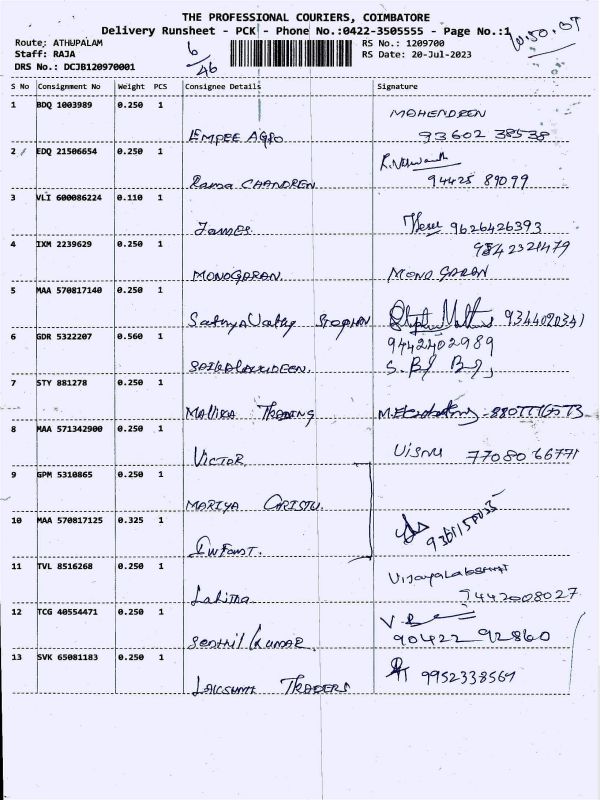 THE PROFESSIONAL COURIERS, COIMBATORE
Delivery Runsheet - PCK - Phone No.:0422-3505555 - Page No.:1
Route: ATHUPALAM
Staff: RAJA
DRS No.: DCJB120970001
6/46
RS No.: 1209700
RS Date: 20-Jul-2023
S No Consignment No Weight PCS Consignee Details Signature
1 BDQ 1003989 0.250 1
EMPEE AGRO
MAHENDREN
93602 38538
2 EDQ 21506654 0.250 1
Rama CHANDREN
94425 89099
3 VLI 600086224 0.110 1
James
9626426393
4 IXM 2239629 0.250 1
9842321479
MONOGARAN
MONO GARAN
5 MAA 570817140 0.250 1
SathyaVathy STEPHAN
9344020341
6 GDR 5322207 0.560 1
9442402989
7 STY 881278 0.250 1
MALLIKA TRADING
8 MAA 571342900 0.250 1
VICTOR
VISNU 77080 66771
9 GPM 5310865 0.250 1
MARIYA CRISTU.
10 MAA 570817125 0.325 1
11 TVL 8516268 0.250 1
Lalitha
VIJAYALAKSHMI
12 TCG 40554471 0.250 1
Senthil Kumar
90422 92860
13 SVK 65081183 0.250 1
LAKSHMI TRADERS
9952338567